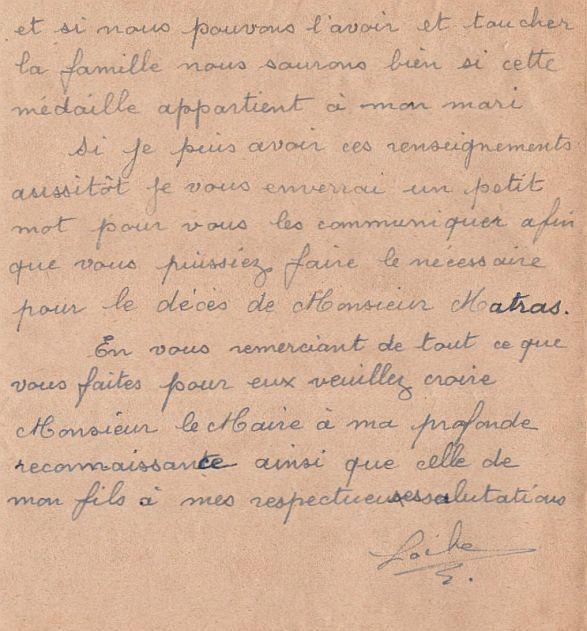 et si nous pouvons l'avoir et toucher
la famille nous saurons bien si cette
médaille appartient à mon mari
Si je puis avoir ces renseignements
asissitôt je vous enverrai un petit
mot pour vous les communiquer afin
que vous puissiez faire le nécessaire
pour le décès de Monsieur Matras.
En vous remerciant de tout ce que
vous faites pour eux veuillez croire
Monsieur le Maire à ma profonde
reconnaissance ainsi que celle de
mon fils à mes respectueuses salutations